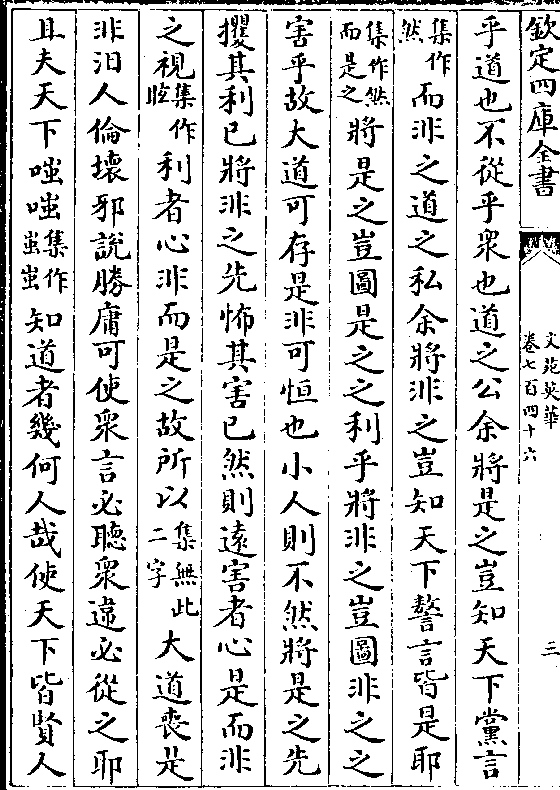 欽定四庫全書
文苑英華
卷七百四十六
三
乎道也不從乎衆也道之公余將是之豈知天下黨言
集作然而非之道之私余將非之豈知天下謷言皆是耶
集作然而是之將是之豈圖是之之利乎將非之豈圖非之之
害乎故大道可存是非可恒也小人則不然將是之先
攫其利已將非之先怖其害已然則遠害者心是而非
之視集作眂利者心非而是之故所以集無此二字大道喪是
非汨人倫壞邪說勝庸可使衆言必聽衆違必從之耶
且夫天下嗤嗤集作蚩蚩知道者幾何人哉使天下皆賢人